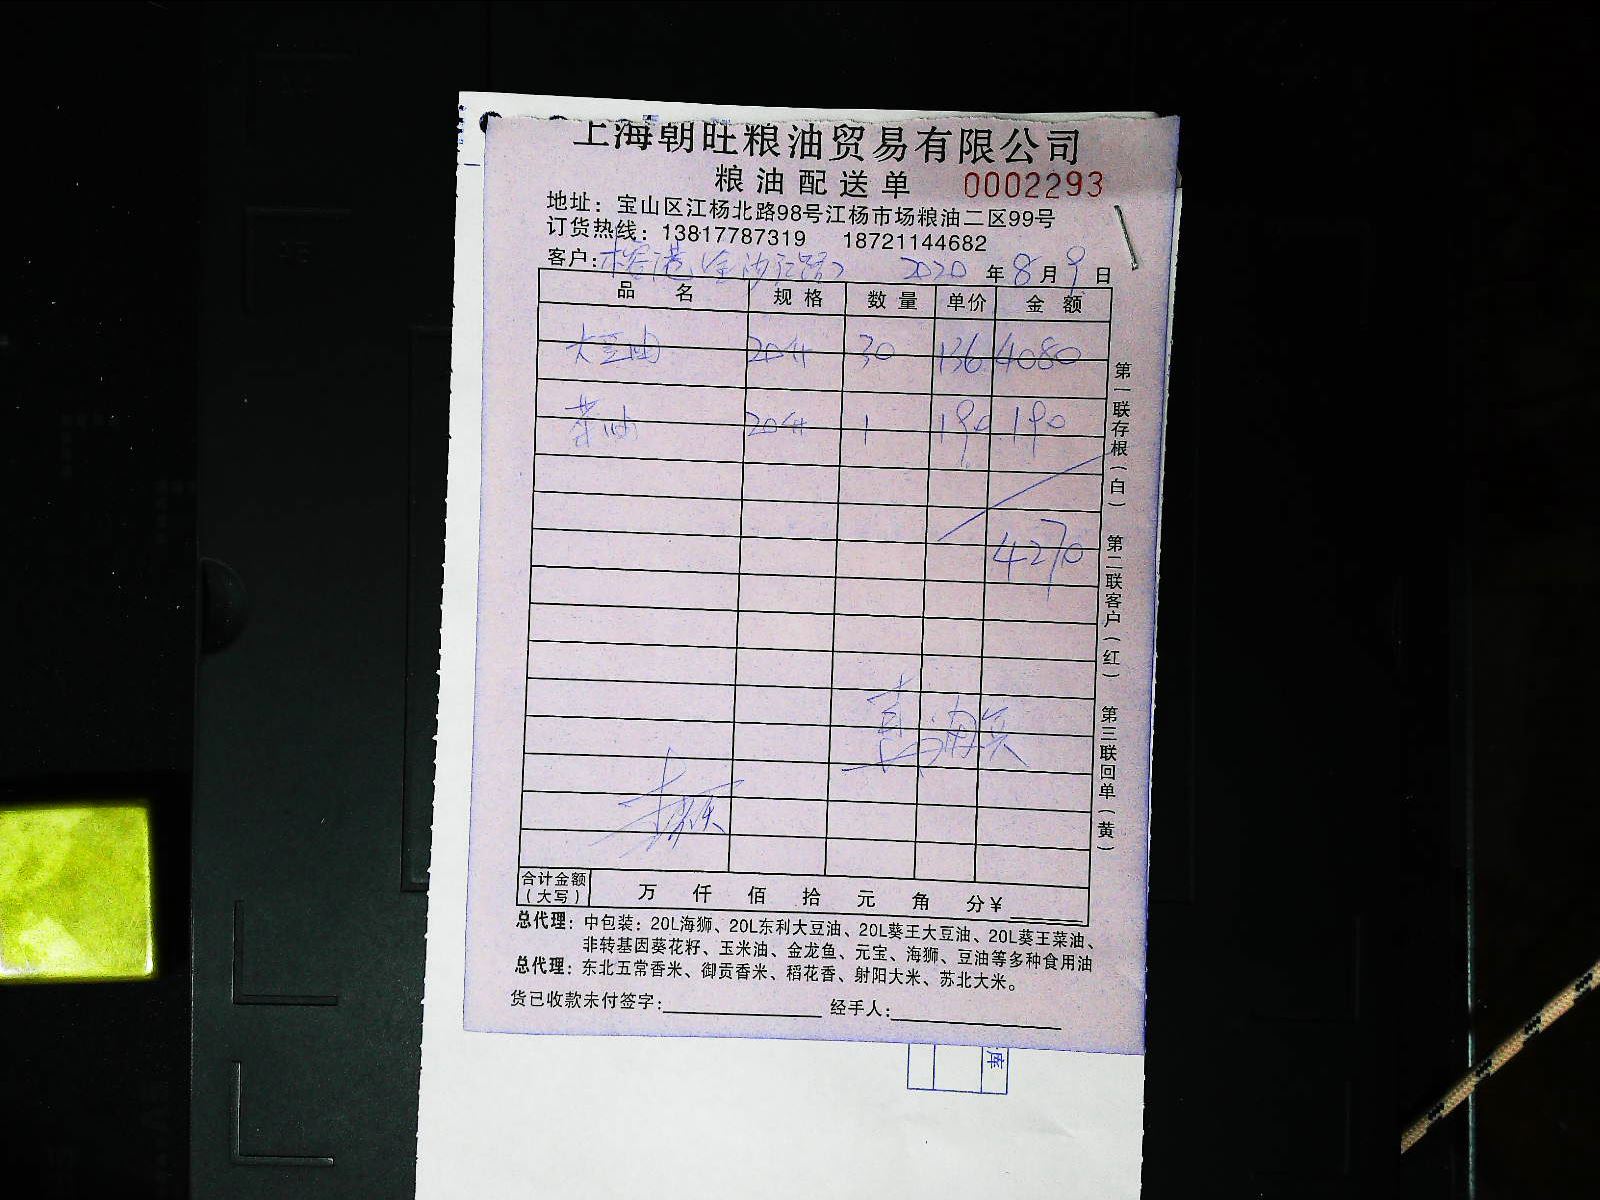 上海朝旺粮油贸易有限公司
粮油配送单 0002293
地址：宝山区江杨北路98号江杨市场粮油二区99号
订货热线：13817787319 18721144682
客户：榕港(金沙江路) 2020年8月9日
品名 规格 数量 单价 金额
大豆油 20升 30 136 4080
菜油 20升 1 190 190
4270
第一联存根（白） 第二联客户（红） 第三联回单（黄）
合计金额（大写） 万 仟 佰 拾 元 角 分¥
总代理：中包装：20L海狮、20L东利大豆油、20L葵王大豆油、20L葵王菜油、
非转基因葵花籽、玉米油、金龙鱼、元宝、海狮、豆油等多种食用油
总代理：东北五常香米、御贡香米、稻花香、射阳大米、苏北大米。
货已收款未付签字： 经手人：
库